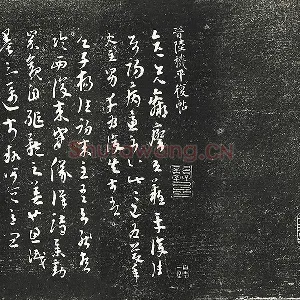 晉陸機平復帖
彥先羸瘵恐難平復往屬
初病慮不止此此已為慶承
使唯男幸為復失前憂耳
吳子楊往初來主吾不能盡
臨西復來威儀詳跱舉動
成觀自軀體之美也思識
量之邁前執所恒有宜
Shufawang.CN